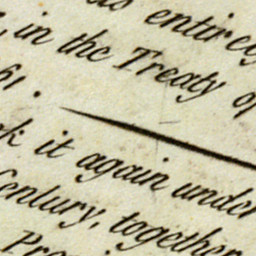 as entirely
, in the Treaty of
61.
k it again under
Century, together